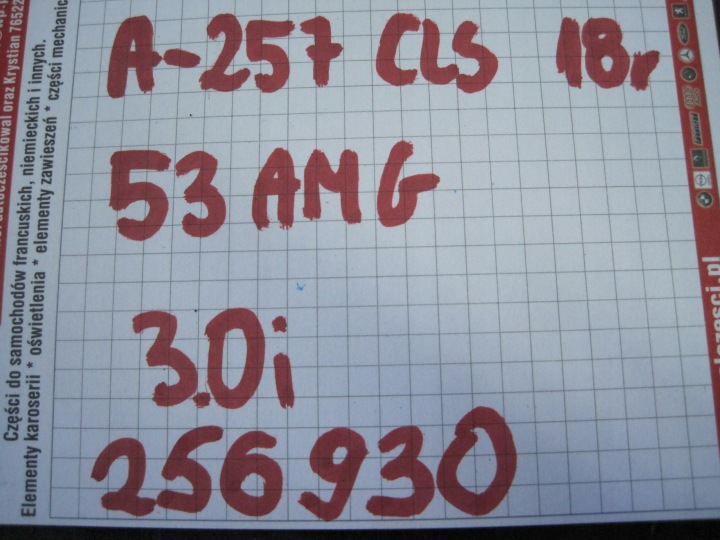 A-257 CLS 18r
53 AMG
3.0i
256930
Części do samochodów francuskich, niemieckich i innych.
Elementy karoserii * oświetlenia * elementy zawieszeń * części mechanic
oraz Krystian 76522